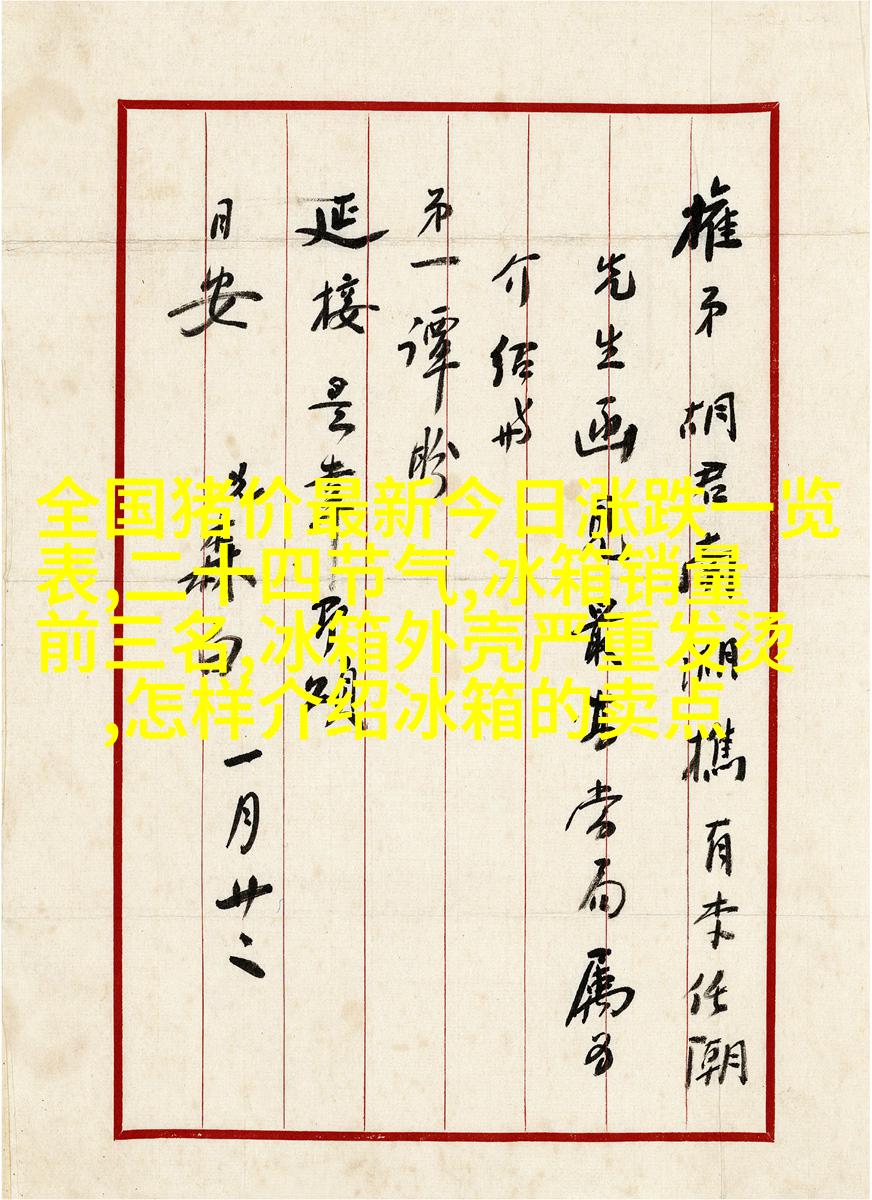 全国猪价最新今日涨跌一览
表,二十四节气,冰箱销量
前三名,冰箱外壳严重发烫
,怎样介绍冰箱的卖点
权弟胡君南湖携有李任潮
先生函见最高当局属为
介绍于
弟一谭盼
延接是幸即颂
日安
一月廿二